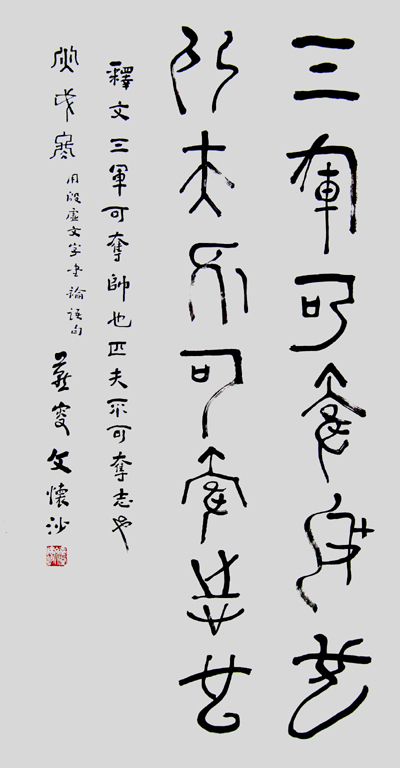 三軍可奪帥也
匹夫不可奪志也
釋文 三軍可奪帥也匹夫不可奪志也
戊寅 用殷虛文字書論語句 燕叟文懷沙